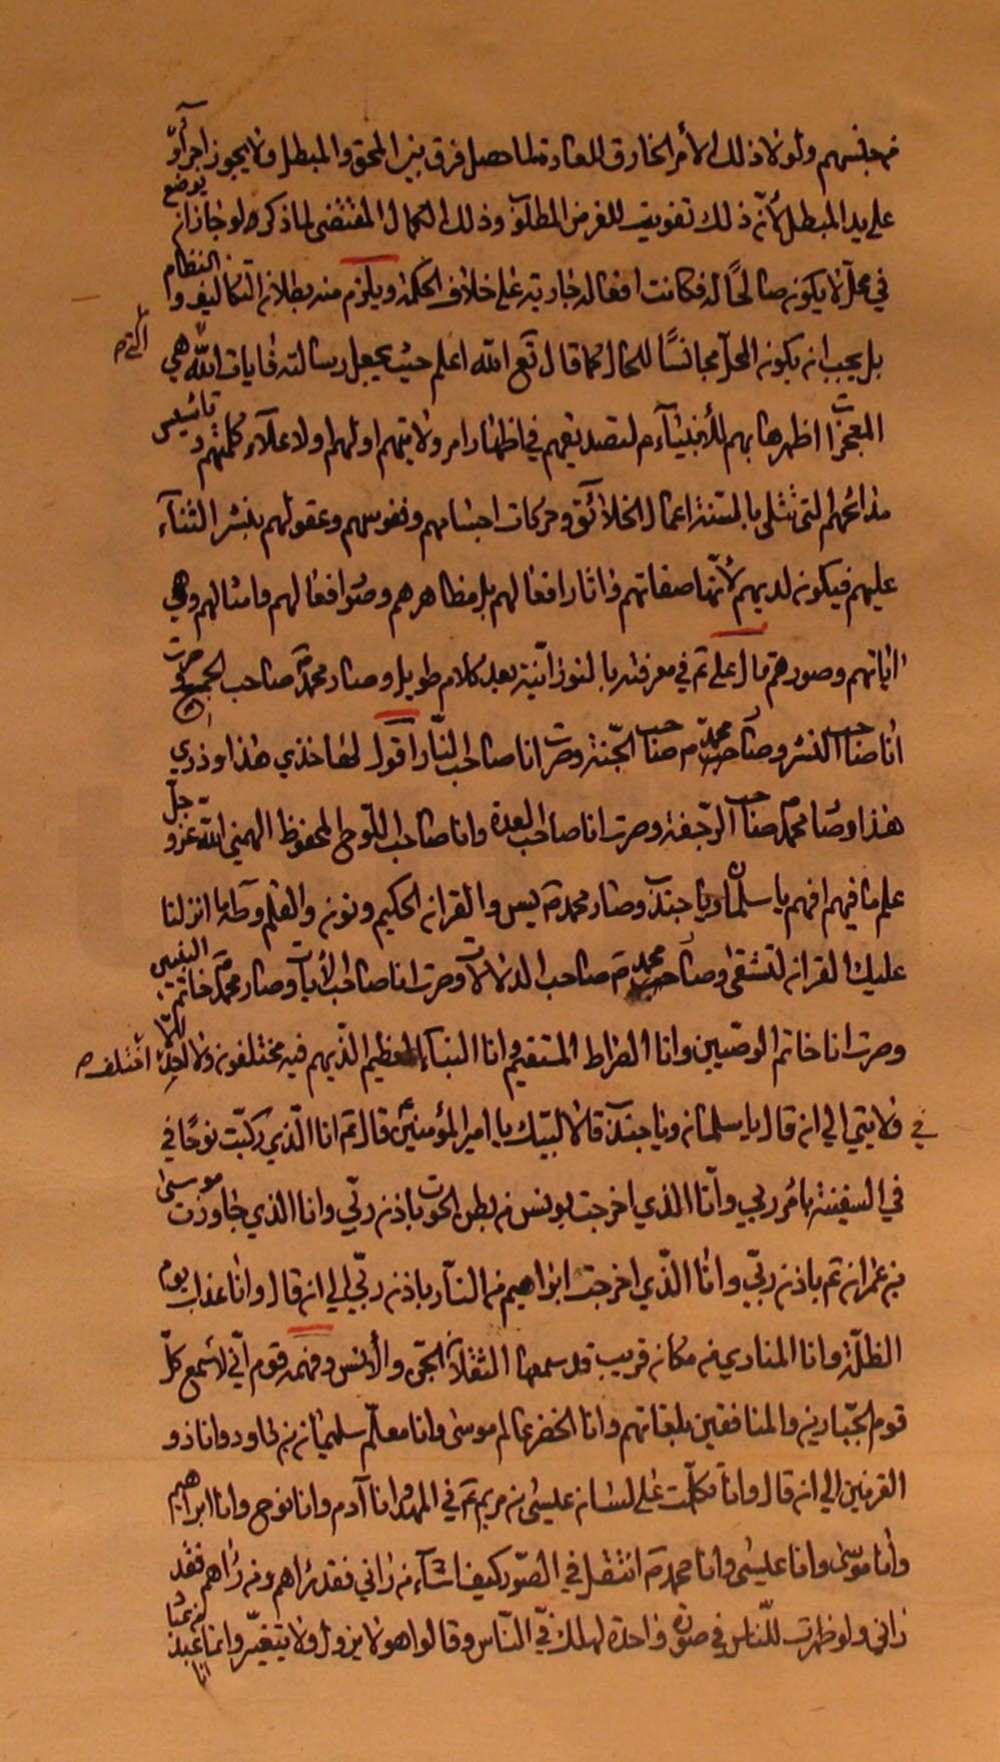 من جنسهم ولولا ذلك الأمر الخارق للعادة لما حصل فرق بين المحق والمبطل ولا يجوز اجرآؤه
على يد المبطل لأنّ ذلك تفويت للغرض المطلوب وذلك الكمال المقتضى لما ذكر ولو جاز ان يوضع
في محلّ لا يكون صالحًا له فكانت افعاله جارية على خلاف الحكمة ويلزم منه بطلان التكاليف والنظام
بل يجب ان يكون المحلّ مجانسًا للحال كما قال تع الله اعلم حيث يجعل رسالته فايات الله هي
المعجزات اظهرها بهم للأنبيآء م لتصديقهم في اظهار امر ولايتهم اولهم اولاعلآء كلمتهم و
مدائحهم التى تتلى بالسنة اعمال الخلائق وحركات اجسامهم ونفوسهم وعقولهم بنشر الثنآء
عليهم فيكون لديهم لأنّها صفاتهم واثار افعالهم بل مظاهرهم وصور افعالهم وامثالهم وهي
اياتهم وصورهم قال علي ع في معرفته بالنورانية بعد كلام طويل وصار محمد ص صاحب الجمع وصرت
انا صاحب النشر وصار محمد ص صاحب الجنّة وصرت انا صاحب النّار اقول لها خذي هذا وذري
هذا وصار محمد ص صاحب الرّجفة وصرت انا صاحب العدة وانا صاحب اللّوح المحفوظ الهمني الله عزّ وجلّ
علم ما فيه افهم يا سلمان ويا جندب وصار محمد ص يس والقران الحكيم ونون والقلم وطه ما انزلنا
عليك القران لتشقى وصار محمد ص صاحب الدلالات وصرت انا صاحب الأيات وصار محمد ص خاتم النبيين
وصرت انا خاتم الوصّيين وانا الصراط المستقيم وانا النباء العظيم الّذي هم فيه مختلفون ولا احد اختلف الّا
في ولايتي الي ان قال يا سلمان ويا جندب قالا لبّيك يا امير المؤمنين قال ع انا الّذي ركبّت نوحًا في
في السفينة بامر ربي وانا الذي اخرجت يونس من بطن الحوت باذن ربّي وانا الذي جاوزت موسى
بن عمران ع باذن ربّي وانا الّذي اخرجت ابراهيم من النّار باذن ربّي الي ان قال وانا عذاب يوم
الظلّة وانا المنادي من مكان قريب قد سمعه الثقلان الجّن والأنس وفهمه قوم انّي لأسمع كلّ
قوم الجبّارين والمنافقين بلغاتهم وانا الخضر عالم موسى وانا معلّم سليمان بن داود وانا ذو
القرنين الي ان قال وانا تكلّمت على لسان عيسى بن مريم ع في المهد وانا آدم وانا نوح وانا ابراهيم
وانا موسى وانا عيسى وانا محمد ص انتقل في الصّور كيف اشآء من رآني فقد رآهم ومن رآهم فقد
رآني ولو ظهرت للنّاس في صورة واحدة لهلك فّي النّاس وقالوا هو لا يزول ولا يتغيّر وانما انا عبد من عباد